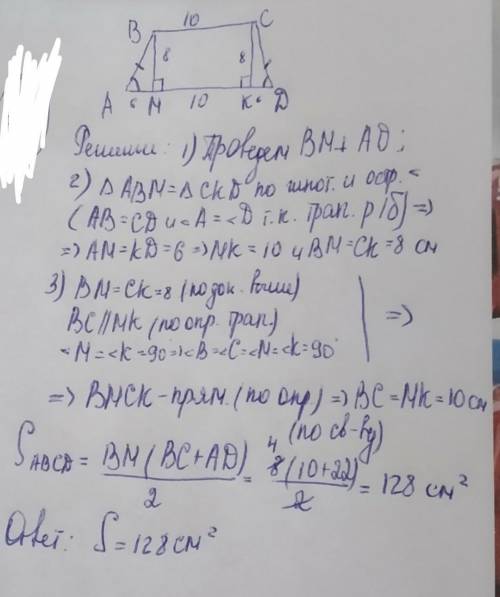 10
B C
8 8
A 6 M 10 K 6 D
Решение: 1) Проведем BM ⊥ AD;
2) △ABM = △CKD по гипот. и остр. ∠
(AB = CD и ∠A = ∠D т.к. трап. р/б) =>
=> AM = KD = 6 => MK = 10 и BM = CK = 8 см
3) BM = CK = 8 (по док. выше)
BC // MK (по опр. трап.)
∠M = ∠K = 90° => ∠B = ∠C = ∠M = ∠K = 90°
=>
=> BMCK - прям. (по опр) => BC = MK = 10 см
(по св-ву)
S ABCD = BM (BC + AD) / 2 = 8 (10 + 22) / 2 = 128 см²
4
Ответ: S = 128 см²